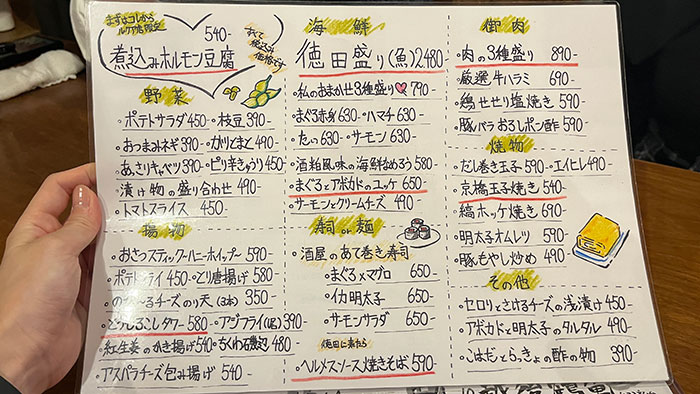 まずはコレから
すべて
税込み
価格です
煮込みホルモン豆腐 540-
野菜
・ポテトサラダ 450 ・枝豆 390-
・おつまみネギ 390- ・ガリとまと 490-
・あっさりキャベツ 390- ・ピリ辛きゅうり 450-
・漬け物の盛り合わせ 490-
・トマトスライス 450-
揚物
・おさつスティックハニーホイップ 590-
・ポテトフライ 450 ・とり唐揚げ 580-
・のび〜るチーズのり天(3本) 350-
・とうもろこしタワー 580 ・アジフライ 390-
・紅生姜のかき揚げ 540 ・ちくわ磯辺 480
・アスパラチーズ包み揚げ 540-
海鮮
徳田盛り(魚) 2,480-
・私のおまかせ3種盛り♡ 790-
・まぐろ赤身 630- ・ハマチ 630-
・たい 630- ・サーモン 630-
・酒粕風味の海鮮なめろう 580
・まぐろとアボカドのユッケ 650
・サーモンとクリームチーズ 490
寿司 or 麺
・酒屋のあて巻き寿司
・まぐろ×マグロ 650-
・イカ明太子 650-
・サーモンサラダ 650-
・ヘルメスソース焼きそば 590-
御肉
・肉の3種盛り 890-
・厳選牛ハラミ 690-
・鶏せせり塩焼き 590-
・豚バラおろしポン酢 590-
焼物
・だし巻き玉子 590- ・エイヒレ 490-
・京橋玉子焼き 540-
・縞ホッケ焼き 690-
・明太子オムレツ 590-
・豚もやし炒め 490-
その他
・セロリとさけるチーズの浅漬け 450-
・アボカドと明太子のタルタル 490-
・こはだとらっきょの酢の物 390-